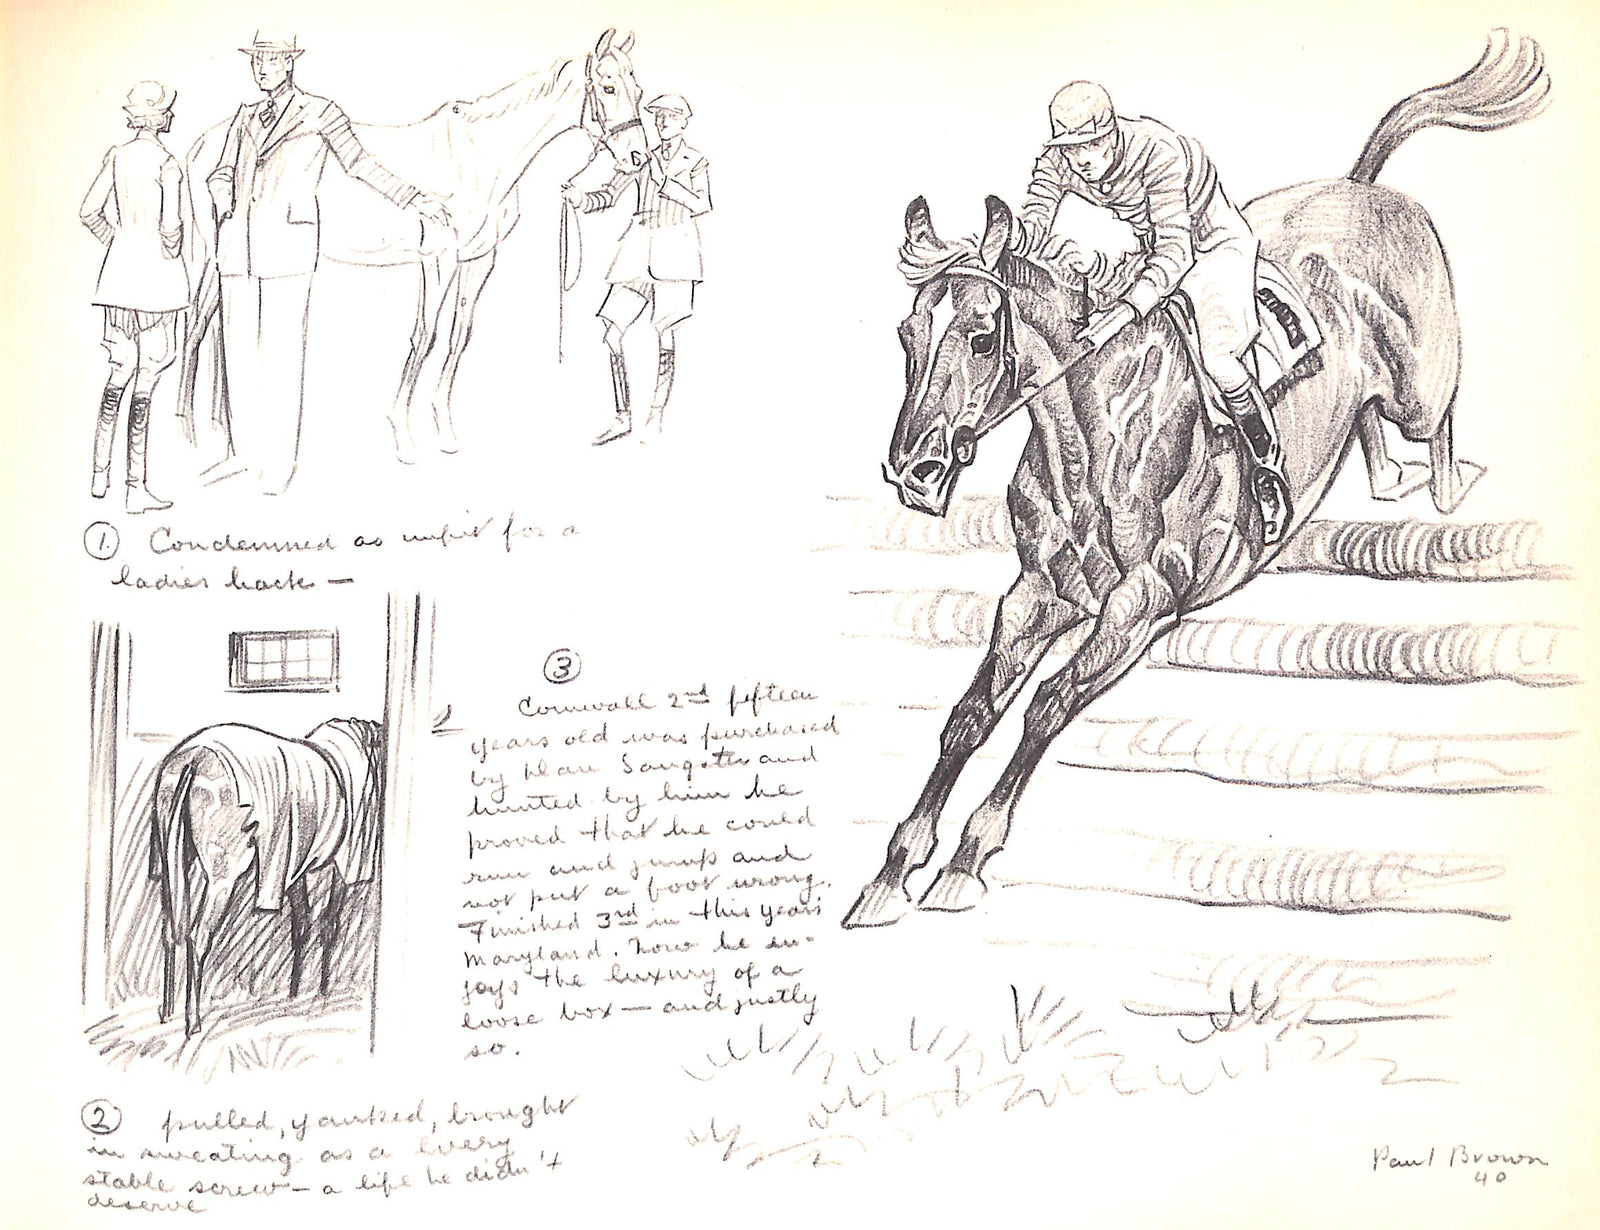 ① Condemned as unfit for a
ladies hack —
② pulled, yanked, brought
in sweating as a livery
stable screw — a life he didn't
deserve
③
Cornwall 2nd fifteen
years old was purchased
by
hunted by him he
proved that he could
run and jump and
not put a foot wrong.
Finished 3rd in this years
Maryland. Now he en-
joys the luxury of a
loose box — and justly
so.
Paul Brown
40